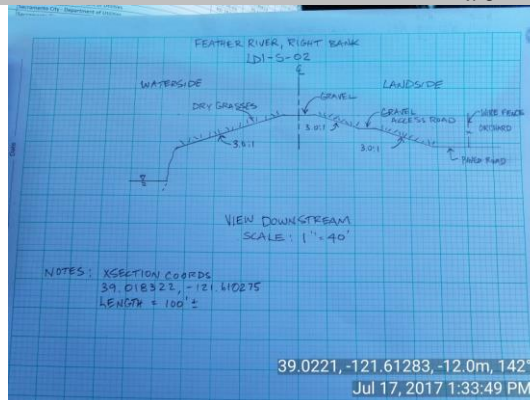 Sacramento City - Department of Utilities
FEATHER RIVER, RIGHT BANK
LD1-S-02
WATERSIDE
℄
LANDSIDE
DRY GRASSES
GRAVEL
GRAVEL
ACCESS ROAD
WIRE FENCE
ORCHARD
3.0:1
3.0:1
3.0:1
PAVED ROAD
VIEW DOWNSTREAM
SCALE: 1"=40'
NOTES: XSECTION COORDS
39.018322, -121.610275
LENGTH = 100'±
39.0221, -121.61283, -12.0m, 142°
Jul 17, 2017 1:33:49 PM